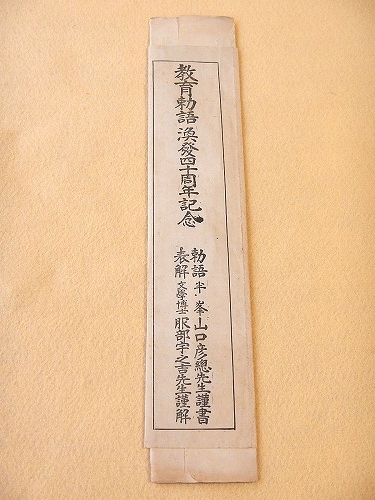 教育勅語渙發四十周年記念
勅語 半峯山口彦總先生謹書
表解 文學博士服部宇之吉先生謹解